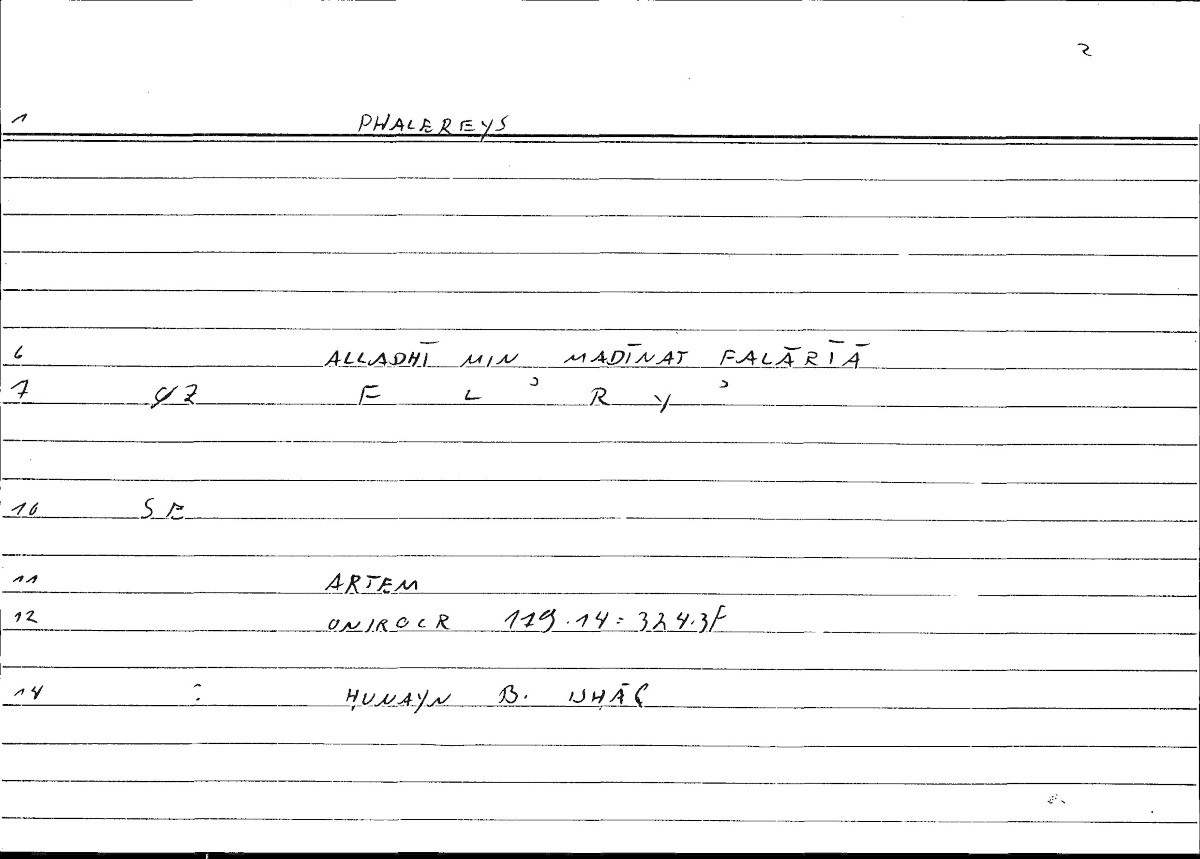 2
1 PHALEREYS
6 ALLADHĪ MIN MADĪNAT FALĀRĪĀ
7 QZ F L ʾ R Y ʾ
10 SE
11 ARTEM
12 ONIROCR 119.14:324.3F
14 : ḤUNAYN B. ISḤĀQ